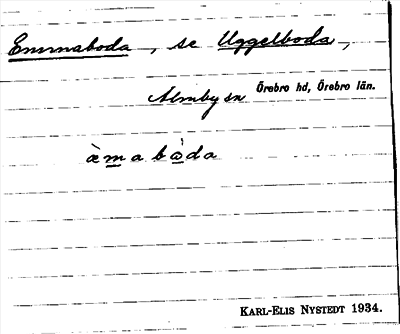 Emmaboda, se Uggelboda,
Almby sn Örebro hd, Örebro län.
àmabàda
KARL-ELIS NYSTEDT 1934.